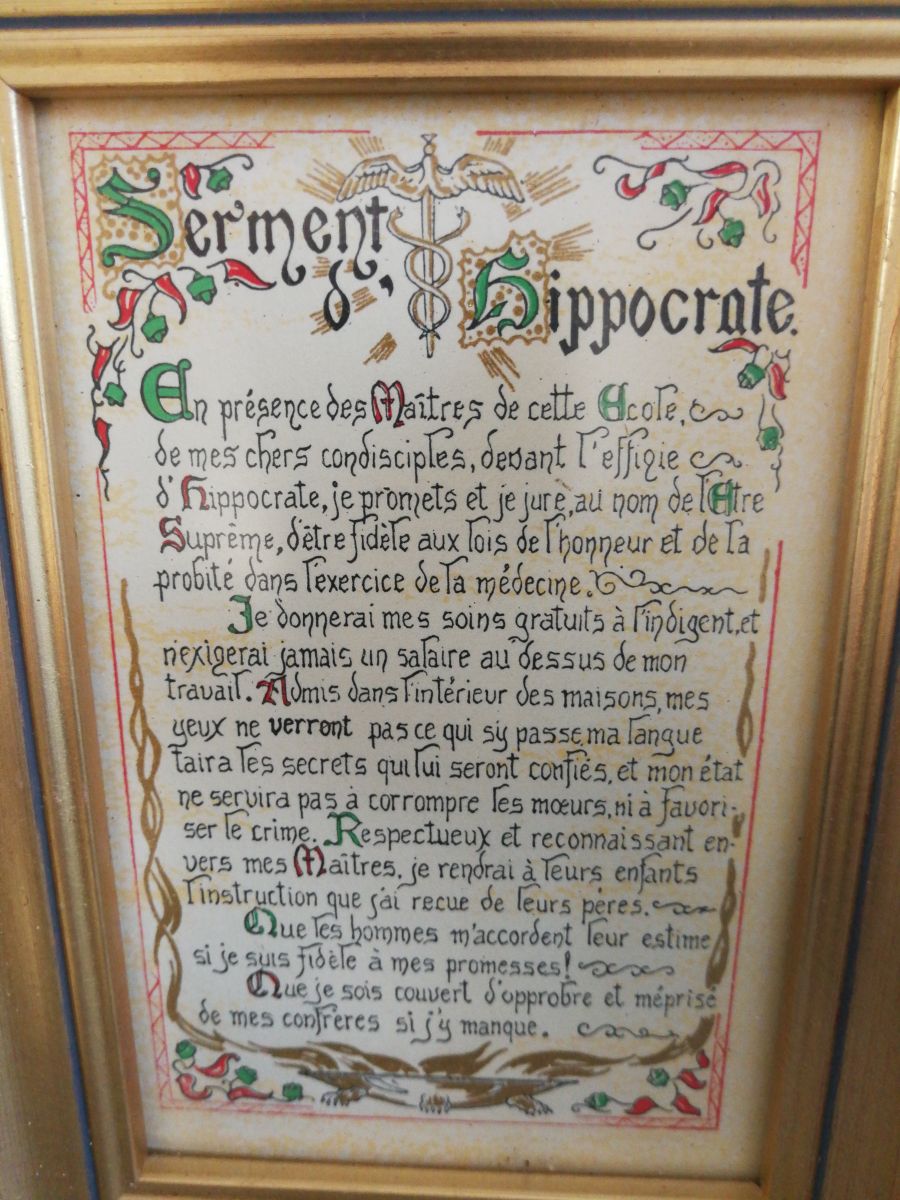 Serment
d'Hippocrate.
En présence des Maîtres de cette Ecole,
de mes chers condisciples, devant l'effigie
d'Hippocrate, je promets et je jure, au nom de l'Etre
Suprême, d'être fidèle aux lois de l'honneur et de la
probité dans l'exercice de la médecine.
Je donnerai mes soins gratuits à l'indigent, et
n'exigerai jamais un salaire au dessus de mon
travail. Admis dans l'intérieur des maisons, mes
yeux ne verront pas ce qui s'y passe, ma langue
taira les secrets qui lui seront confiés, et mon état
ne servira pas à corrompre les mœurs, ni à favori-
ser le crime. Respectueux et reconnaissant en-
vers mes Maîtres, je rendrai à leurs enfants
l'instruction que j'ai recue de leurs pères.
Que les hommes m'accordent leur estime
si je suis fidèle à mes promesses!
Que je sois couvert d'opprobre et méprisé
de mes confrères si j'y manque.